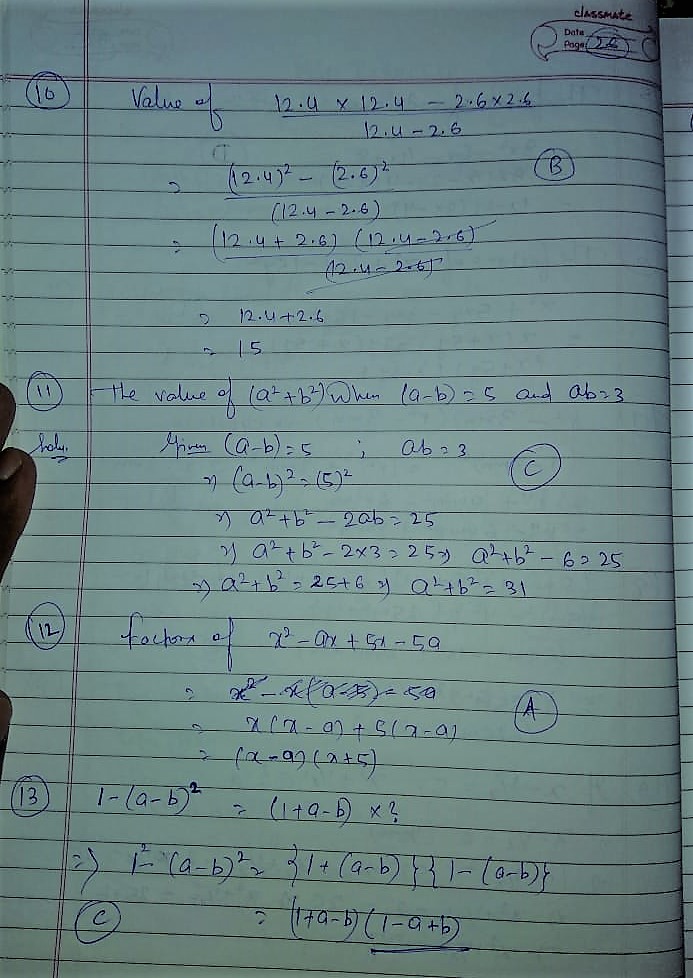 classmate
Date
Page 26
10 Value of 12.4 × 12.4 - 2.6×2.6
12.4 - 2.6
= (12.4)² - (2.6)² B
(12.4 - 2.6)
= (12.4 + 2.6) (12.4 - 2.6)
(12.4 - 2.6)
= 12.4+2.6
= 15
11 The value of (a²+b²) When (a-b) = 5 and ab=3
Soln. Given (a-b)=5 ; ab = 3 C
⇒ (a-b)² = (5)²
⇒ a²+b² - 2ab = 25
⇒ a²+b² - 2×3 = 25 ⇒ a²+b² - 6 = 25
⇒ a²+b² = 25+6 ⇒ a²+b² = 31
12 Factors of x² - ax + 5x - 5a
= x² - x(a-5) - 5a
= x(x-a) + 5(x-a) A
= (x-a) (x+5)
13 1-(a-b)² = (1+a-b) × ?
⇒ 1² - (a-b)² = {1+(a-b)}{1-(a-b)}
C = (1+a-b)(1-a+b)